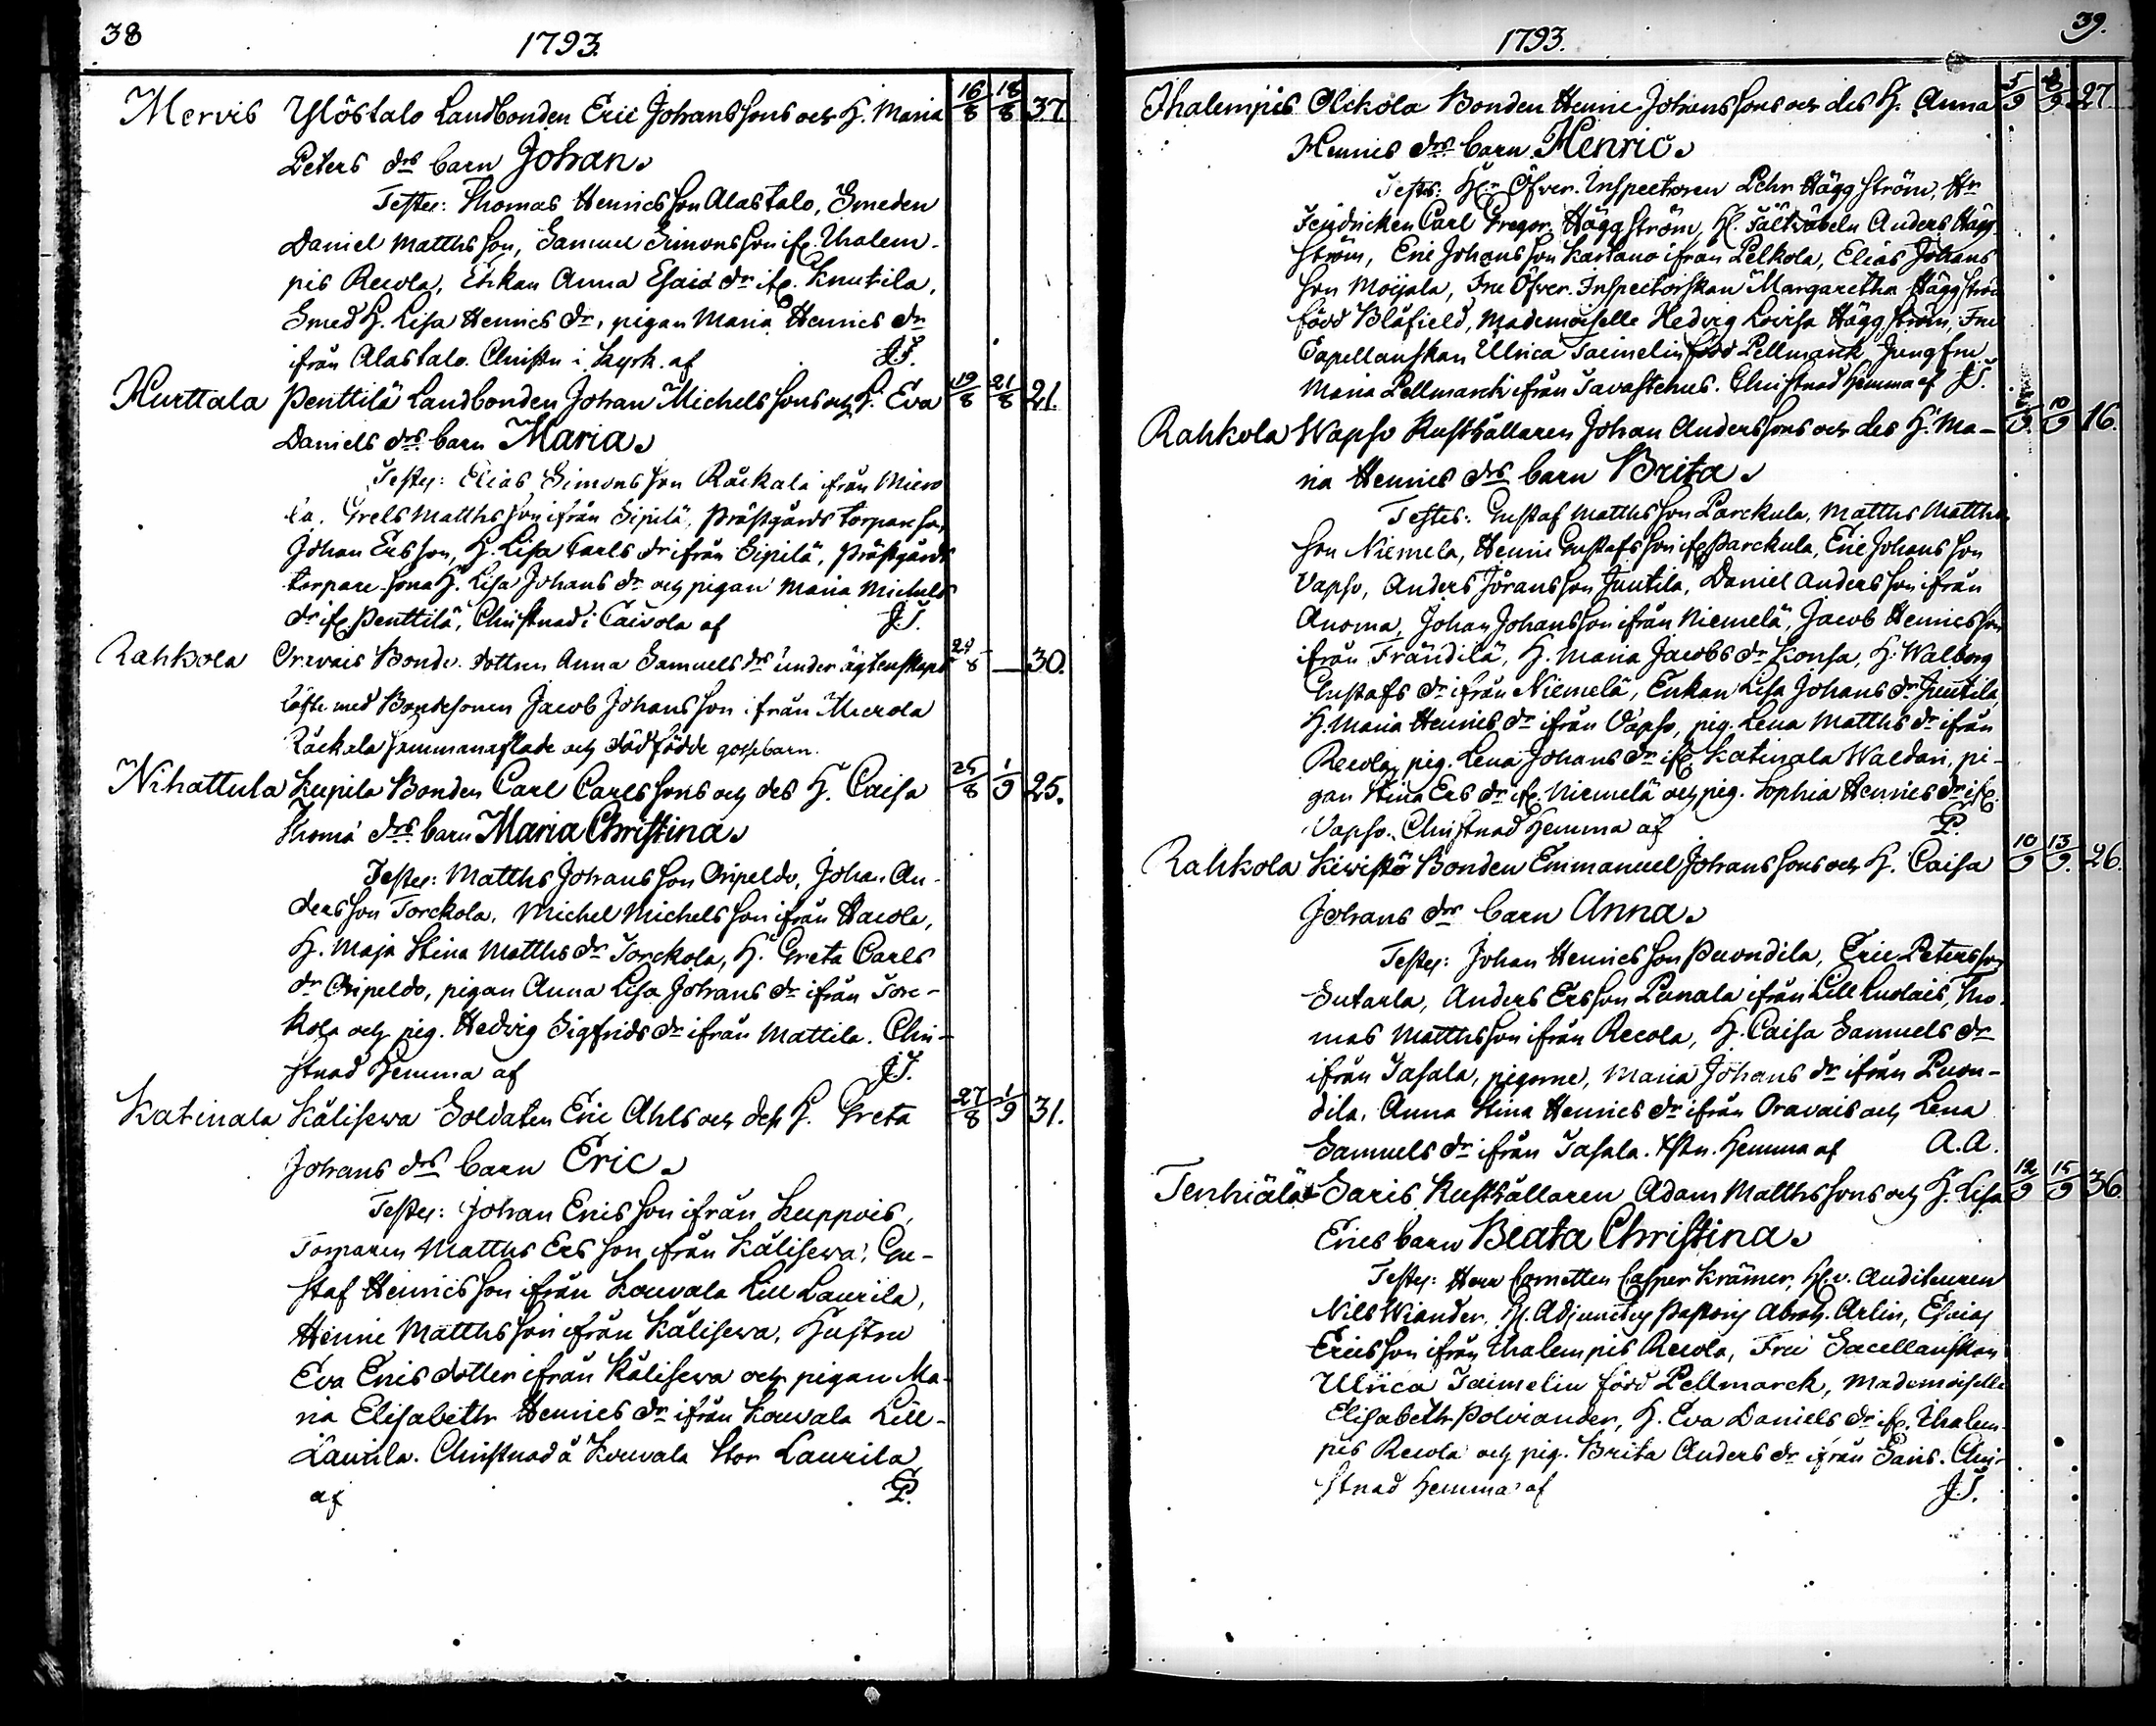 38
1793.
Mervis Ylöstalo Landbonden Eric Johanssons och H. Maria 16/8 18/8 37
Peters drs barn Johan.
Testes: Thomas Henricsson Alastalo, Smeden
Daniel Matthsson, Samuel Simonsson ifr. Ihalem-
pis Recola, Enkan Anna Esaiæ dr ifr. Knutila,
Smed H. Lisa Henrics dr, pigan Maria Henrics dr
ifrån Alastalo. Christn i kyrk. af J.T.
Hurttala Penttilä Landbonden Johan Michelssons och H. Eva 19/8 21/8 21.
Daniels drs barn Maria.
Testes: Elias Simonsson Räikälä ifrån Miero
la. Grels Matthsson ifrån Sipilä, Prästgårds torpare son
Johan Ersson, H. Lisa Carls dr ifrån Sipilä, Prästgårds
torpare sona H. Lisa Johans dr och pigan Maria Michels
dr ifr. Penttilä, Christnad i Caivola af J.T.
Rahkola Oravais Bonde dottren Anna Samuels drs under ägtenskaps 24/8 — 30.
löfte med Bondesonen Jacob Johansson ifrån Mierola
Räikälä sammanaflade och dödfödde gossebarn.
Nihattula Kupila Bonden Carl Carlssons och des H. Caisa 25/8 1/9 25.
Thomæ drs barn Maria Christina.
Testes: Matths Johansson Anipeldo, Johan An-
dersson Torckola, Michel Michelsson ifrån Hacola,
H. Maja Stina Matths dr Torckola, H. Greta Carls
dr Anipeldo, pigan Anna Lisa Johans dr ifrån Torc-
kola och pig. Hedvig Sigfrids dr ifrån Mattila. Chri-
stnad hemma af J.T.
Katinala Kälisewa Soldaten Eric Ahls och dess H. Greta 27/8 1/9 31.
Johans drs barn Eric.
Testes: Johan Ericsson ifrån Leppois,
Torparen Matths Ersson ifrån Kälisewa, Gu-
staf Henricsson ifrån Kouvala Lill Laurila,
Henric Matthsson ifrån Kälisewa, Hustru
Eva Erics dotter ifrån Kälisewa och pigan Ma-
ria Elisabeth Henrics dr ifrån Kouvala Lill-
Laurila. Christnad å Kouvala Stor Laurila
af P.
39.
1793.
Ihalempis Olckola Bonden Henric Johanssons och des H. Anna 5/9 8/9 27
Henrics drs barn Henric.
Testes: Hr Öfver-Inspectoren Pehr Häggström, Hr
Fendricken Carl Gregor. Häggström, H. Fältväbeln Anders Hägg-
ström, Eric Johansson Kartano ifrån Pelkola, Elias Johans
son Moijala, Fru Öfver-Inspectorskan Margaretha Häggström
född Blåfield, Mademoiselle Hedvig Lovisa Häggström, Fru
Capellanskan Ulrica Taimelin född Pellmarck, Jungfru
Maria Pellmarck ifrån Tavastehus. Christnad hemma af J.T.
Rahkola Wapso Rusthållaren Johan Anderssons och des H. Ma- 10/9 16.
ria Henrics drs barn Brita.
Testes: Gustaf Matthsson Parckula, Matths Matths
son Niemelä, Henric Gustafsson ifr. Parckula, Eric Johansson
Vapso, Anders Jöransson Juutila, Daniel Andersson ifrån
Anoma, Johan Johansson ifrån Niemelä, Jacob Henricsson
ifrån Frändilä, H. Maria Jacobs dr Konsa, H. Walborg
Gustafs dr ifrån Niemelä, Enkan Lisa Johans dr Juutila,
H. Maria Henrics dr ifrån Vapso, pig. Lena Matths dr ifrån
Recola, pig. Lena Johans dr ifr. Katinala Waldari, pi-
gan Stina Ers dr ifr. Niemelä och pig. Sophia Henrics dr ifr.
Vapso. Christnad hemma af P.
Rahkola Kiwistö Bonden Emmanuel Johanssons och H. Caisa 10/9 13/9 26.
Johans drs barn Anna.
Testes: Johan Henricsson Puondila, Eric Petersson
Sutarla, Anders Ersson Punala ifrån Lill Luolais, Tho-
mas Matthsson ifrån Recola, H. Caisa Samuels dr
ifrån Jasala, pigorne, Maria Johans dr ifrån Puon-
dila, Anna Stina Henrics dr ifrån Oravais och Lena
Samuels dr ifrån Jasala. Xstn. hemma af A.A.
Tenhiälä Saris Rusthållaren Adam Matthssons och H. Lisa 12/9 15/9 36.
Erics barn Beata Christina.
Testes: Herr Cornetten Casper Krämer, H. v. Auditeuren
Nils Wiander, H. Adjunctus Pastoris Abrah. Arlin, Esaias
Ericsson ifrån Ihalempis Recola, Fru Sacellanskan
Ulrica Taimelin född Pellmarck, Mademoiselle
Elisabeth Polviander, H. Eva Daniels dr ifr. Ihalem-
pis Recola och pig. Brita Anders dr ifrån Saris. Chri-
stnad hemma af J.T.